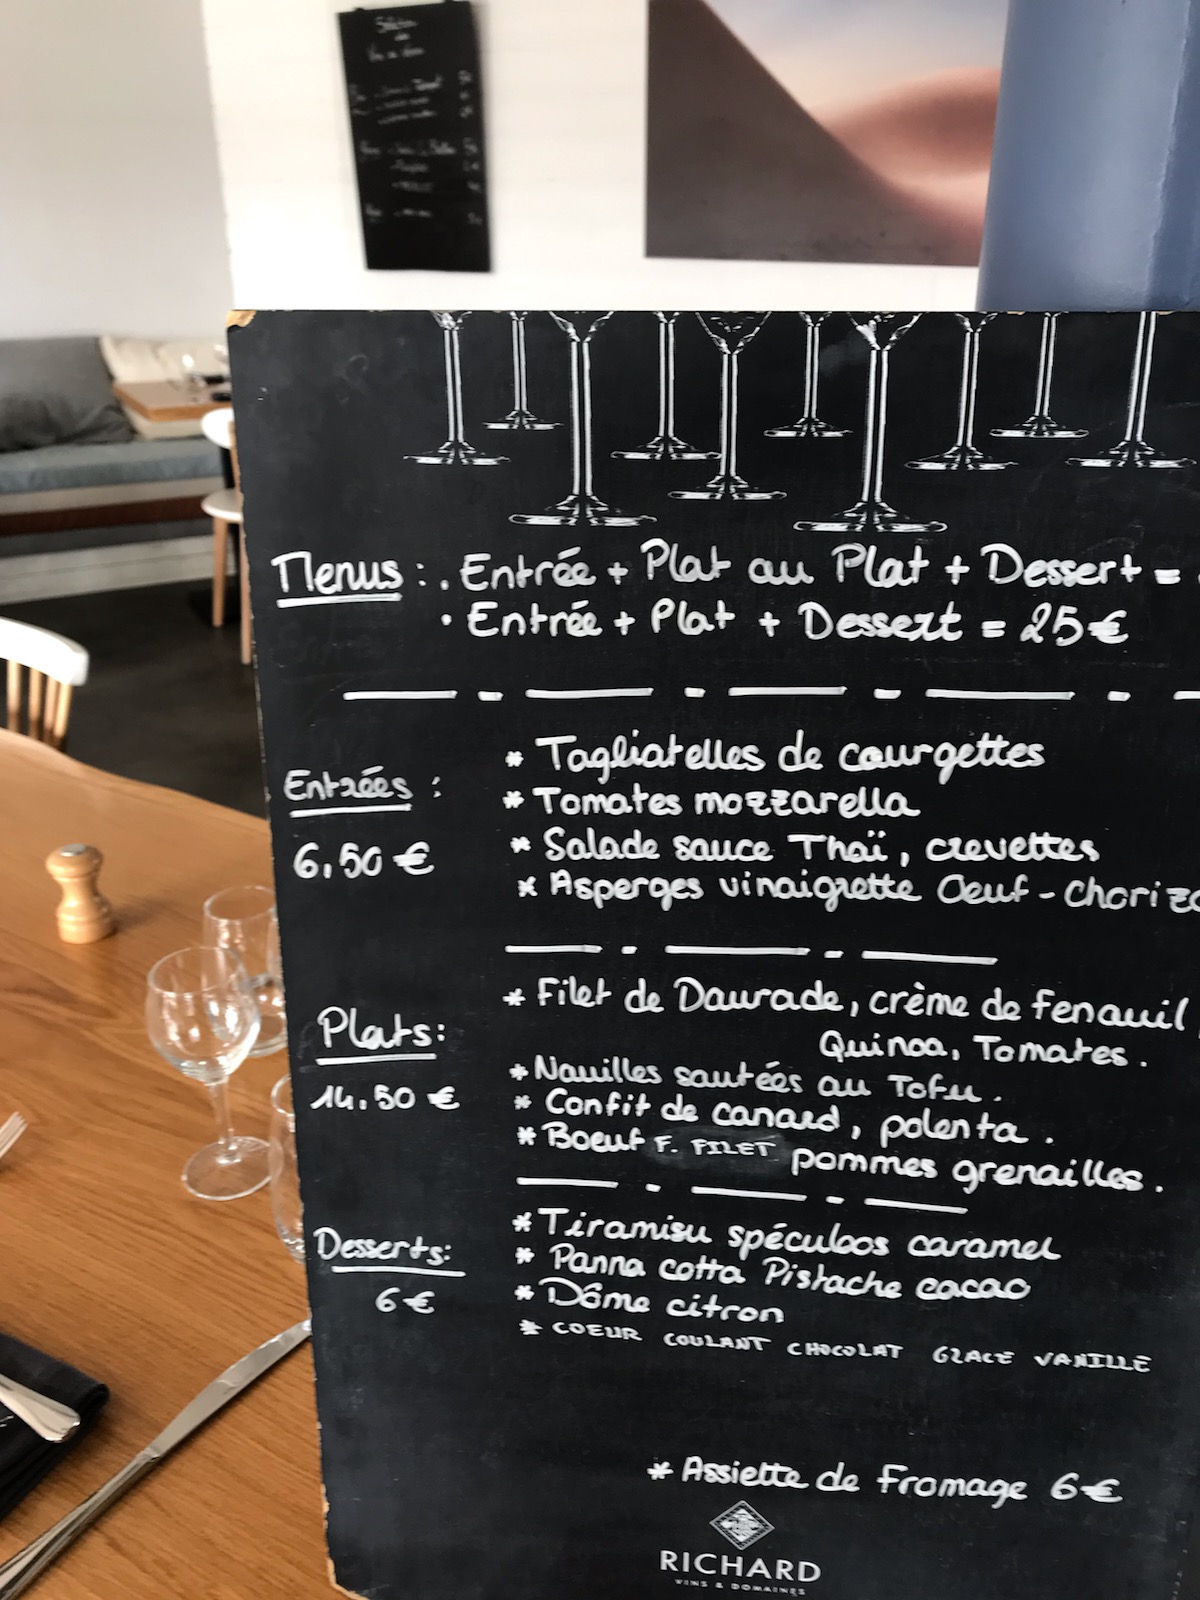 Menus : . Entrée + Plat ou Plat + Dessert =
. Entrée + Plat + Dessert = 25€
Entrées :
6,50 €
* Tagliatelles de courgettes
* Tomates mozzarella
* Salade sauce Thaï, crevettes
* Asperges vinaigrette Oeuf-chorizo
Plats:
14,50 €
* Filet de Daurade, crème de fenouil,
Quinoa, Tomates.
* Nouilles sautées au Tofu.
* Confit de canard, polenta.
* Boeuf F. FILET pommes grenailles.
Desserts:
6 €
* Tiramisu spéculoos caramel
* Panna cotta Pistache cacao
* Dôme citron
* COEUR COULANT CHOCOLAT GLACE VANILLE
* Assiette de Fromage 6€
RICHARD
VINS & DOMAINES